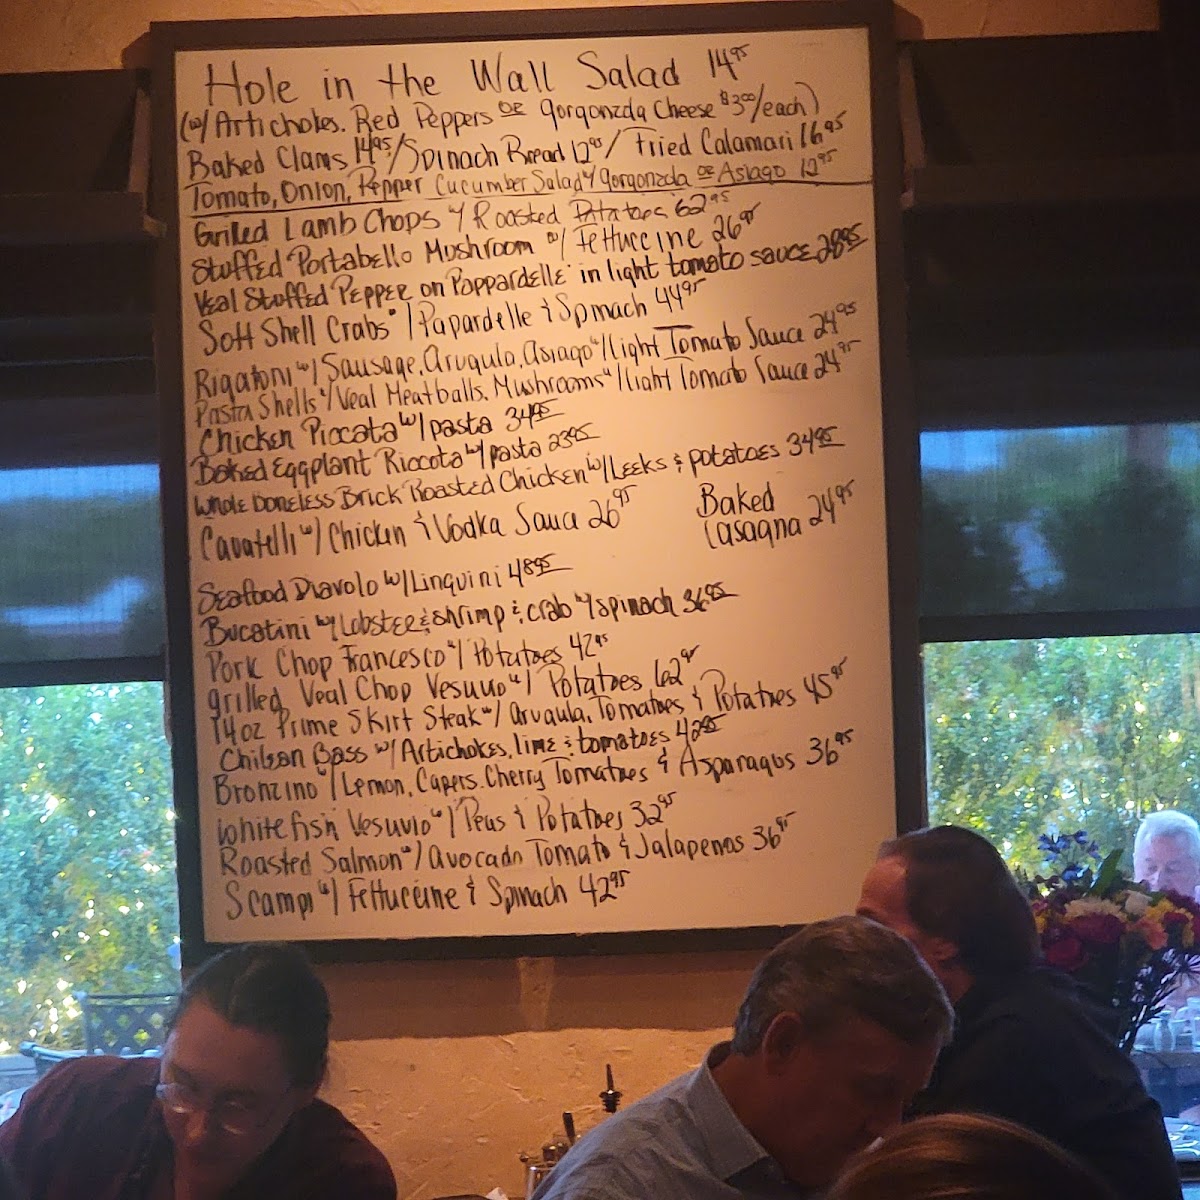 Hole in the Wall Salad 14⁹⁵
(w/ Artichokes. Red Peppers or gorgonzda Cheese $3⁰⁰/each)
Baked Clams 14⁹⁵/Spinach Bread 12⁹⁵/ Fried Calamari 16⁹⁵
Tomato, Onion, Pepper Cucumber Salad w/ gorgonzda or Asiago 12⁹⁵
Grilled Lamb Chops w/ Roasted Potatoes 62⁹⁵
Stuffed Portabello Mushroom w/ Fettuccine 26⁹⁵
Veal Stuffed Pepper on Pappardelle in light tomato sauce 28⁹⁵
Soft Shell Crabs w/ Papardelle & Spinach 44⁹⁵
Rigatoni w/ Sausage, Arugula, Asiago w/ light Tomato Sauce 24⁹⁵
Pasta Shells w/ Veal Meatballs, Mushrooms w/ light Tomato Sauce 24⁹⁵
Chicken Piccata w/ pasta 34⁹⁵
Baked Eggplant Riccota w/ pasta 23⁹⁵
Whole Boneless Brick Roasted Chicken w/ Leeks & potatoes 34⁹⁵
Cavatelli w/ Chicken & Vodka Sauce 26⁹⁵
Baked
Lasagna 24⁹⁵
Seafood Diavolo w/ Linguini 48⁹⁵
Bucatini w/ Lobster & shrimp & crab w/ spinach 36⁹⁵
Pork Chop Francesco w/ Potatoes 42⁹⁵
grilled Veal Chop Vesuvio w/ Potatoes 62⁹⁵
14oz Prime Skirt Steak w/ arugula, Tomatoes & Potatoes 45⁹⁵
Chilean Bass w/ Artichokes, lime & tomatoes 42⁹⁵
Bronzino w/ Lemon, Capers, Cherry Tomatoes & Asparagus 36⁹⁵
Whitefish Vesuvio w/ Peas & Potatoes 32⁹⁵
Roasted Salmon w/ avocado Tomato & Jalapenos 36⁹⁵
Scampi w/ Fettuccine & Spinach 42⁹⁵